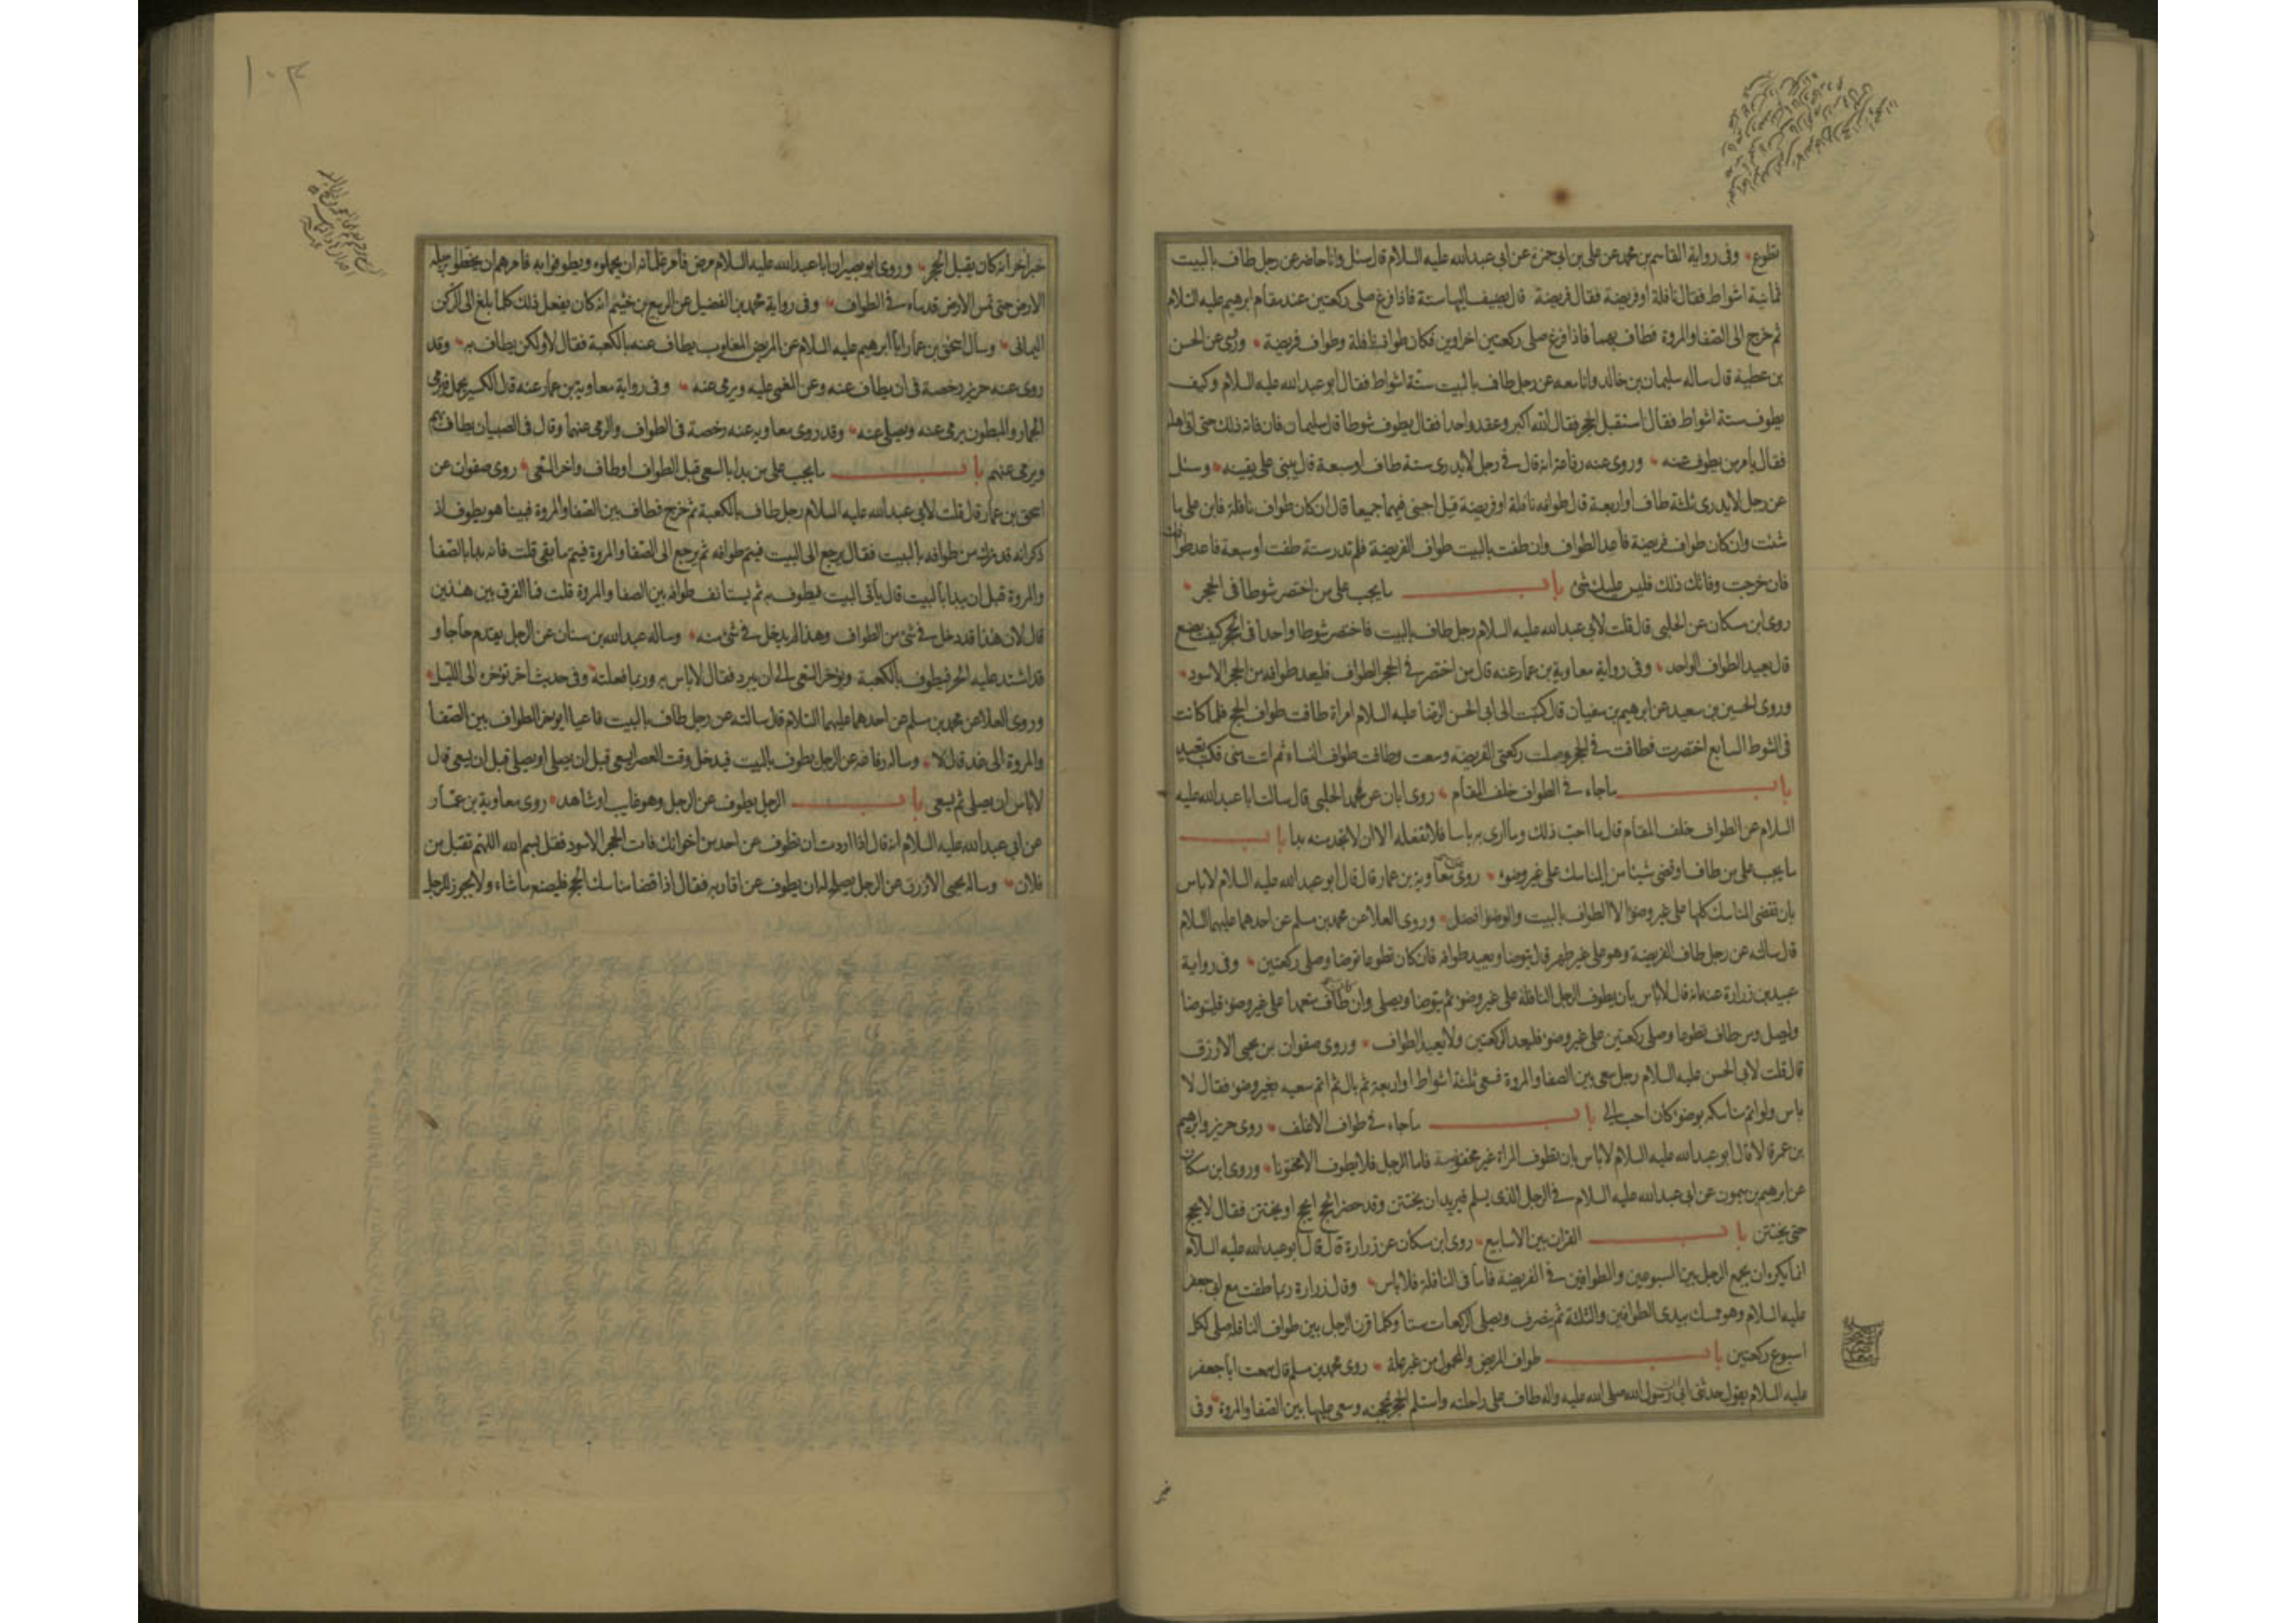 تطوع وفى رواية القاسم بن محمد عن على بن ابى حمزة عن ابى عبدالله عليه السلام قال سئل وانا حاضر عن رجل طاف بالبيت
ثمانية اشواط فقال نافلة او فريضة فقال فريضة قال يضيف اليها ستة فاذا فرغ صلى ركعتين عند مقام ابرهيم عليه السلام
ثم خرج الى الصفا والمروة فطاف بهما فاذا فرغ صلى ركعتين اخراوين فكان طواف نافلة وطواف فريضة وروى عن الحسن
بن عطية قال ساله سليمان بن خالد وانا معه عن رجل طاف بالبيت ستة اشواط فقال ابو عبدالله عليه السلام وكيف
يطوف ستة اشواط فقال استقبل الحجر فقال الله اكبر وعقد واحدا فقال يطوف شوطا قال سليمان فان فاته ذلك حتى اتى اهله
فقال يامر من يطوف عنه وروى عنه رفاعة انه قال فى رجل لا يدرى ستة طاف او سبعة قال يبنى على يقينه وسئل
عن رجل لا يدرى ثلثة طاف او اربعة قال طوافه نافلة او فريضة قيل اجبنى فيهما جميعا قال ان كان طواف نافلة فابن على ما
شئت وان كان طواف فريضة فاعد الطواف وان طفت بالبيت طواف الفريضة فلم تدر ستة طفت او سبعة فاعد طوافك
فان خرجت وفاتك ذلك فليس عليك شئ باب ما يجب على من اختصر شوطا فى الحجر
روى ابن مسكان عن الحلبى قال قلت لابى عبدالله عليه السلام رجل طاف بالبيت فاختصر شوطا واحدا فى الحجر كيف يصنع
قال يعيد الطواف الواحد وفى رواية معاوية بن عمار عنه قال من اختصر فى الحجر الطواف فليعد طوافه من الحجر الاسود
وروى الحسين بن سعيد عن ابرهيم بن سفيان قال كتبت الى ابى الحسن الرضا عليه السلام امراة طافت طواف الحج فلما كانت
فى الشوط السابع اختصرت فطافت فى الحجر وصلت ركعتى الفريضة وسعت وطافت طواف النساء ثم اتت منى فكتب تعيد
باب ما جاء فى الطواف خلف المقام روى ابان عن محمد الحلبى قال سالت ابا عبدالله عليه
السلام عن الطواف خلف المقام قال ما احب ذلك وما ارى به باسا فلا تفعله الا ان لا تجد منه بدا باب
ما يجب على من طاف او قضى شيئا من المناسك على غير وضوء روى معاوية بن عمار قال قال ابو عبدالله عليه السلام لا باس
بان تقضى المناسك كلها على غير وضوء الا الطواف بالبيت والوضوء افضل وروى العلا عن محمد بن مسلم عن احدهما عليهما السلام
قال سالته عن رجل طاف الفريضة وهو على غير طهر قال يتوضا ويعيد طوافه فان كان تطوعا توضا وصلى ركعتين وفى رواية
عبيد بن زرارة عنه انه قال لا باس بان يطوف الرجل النافلة على غير وضوء ثم يتوضا ويصلى وان طاف متعمدا على غير وضوء فليتوضا
وليصل ومن طاف تطوعا وصلى ركعتين على غير وضوء فليعد الركعتين ولا يعيد الطواف وروى صفوان بن يحيى الازرق
قال قلت لابى الحسن عليه السلام رجل سعى بين الصفا والمروة فسعى ثلثة اشواط او اربعة ثم بال ثم اتم سعيه بغير وضوء فقال لا
باس ولو اتم مناسكه بوضوء كان احب الى باب ما جاء فى طواف الاغلف روى حريز وابرهيم
بن عمر قالا قال ابو عبدالله عليه السلام لا باس بان تطوف المراة غير مخفوضة فاما الرجل فلا يطوف الا مختونا وروى ابن مسكان
عن ابرهيم بن ميمون عن ابى عبدالله عليه السلام فى الرجل الذى يسلم فيريد ان يختتن وقد حضر الحج ايحج او يختتن فقال لا يحج
حتى يختتن باب القران بين الاسابيع روى ابن مسكان عن زرارة قال قال ابو عبدالله عليه السلام
انما يكره ان يجمع الرجل بين السبوعين والطوافين فى الفريضة فاما فى النافلة فلا باس وقال زرارة ربما طفت مع ابى جعفر
عليه السلام وهو ممسك بيدى الطوافين والثلثة ثم ينصرف ويصلى الركعات ستا وكلما قرن الرجل بين طواف النافلة صلى لكل
اسبوع ركعتين باب طواف المريض والمحمول من غير علة روى محمد بن مسلم قال سمعت ابا جعفر
عليه السلام يقول حدثنى ابى ان رسول الله صلى الله عليه واله طاف على راحلته واستلم الحجر بمحجنه وسعى عليها بين الصفا والمروة وفى
خبر
١٠٣
خبر اخر انه كان يقبل الحجر وروى ابو بصير ان ابا عبدالله عليه السلام مرض فامر غلمانه ان يحملوه ويطوفوا به فامرهم ان يخطوا برجله
الارض حتى تمس الارض قدماه فى الطواف وفى رواية محمد بن الفضيل عن الربيع بن خثيم انه كان يفعل ذلك كلما بلغ الى الركن
اليمانى وسال اسحق بن عمار ابا ابرهيم عليه السلام عن المريض المغلوب يطاف عنه بالكعبة فقال لا ولكن يطاف به وقد
روى عنه حريز رخصة فى ان يطاف عنه وعن المغمى عليه ويرمى عنه وفى رواية معاوية بن عمار عنه قال الكسير يحمل فيرمى
الجمار والمبطون يرمى عنه ويصلى عنه وقد روى معاوية عنه رخصة فى الطواف والرمى عنهما وقال فى الصبيان يطاف بهم
ويرمى عنهم باب ما يجب على من بدا بالسعى قبل الطواف او طاف واخر السعى روى صفوان عن
اسحق بن عمار قال قلت لابى عبدالله عليه السلام رجل طاف بالكعبة ثم خرج فطاف بين الصفا والمروة فبينا هو يطوف اذ
ذكر انه قد ترك من طوافه بالبيت فقال يرجع الى البيت فيتم طوافه ثم يرجع الى الصفا والمروة فيتم ما بقى قلت فانه بدا بالصفا
والمروة قبل ان يبدا بالبيت قال ياتى البيت فيطوف به ثم يستانف طوافه بين الصفا والمروة قلت فما الفرق بين هذين
قال لان هذا قد دخل فى شئ من الطواف وهذا لم يدخل فى شئ منه وساله عبدالله بن سنان عن الرجل يقدم حاجا و
قد اشتد عليه الحر فيطوف بالكعبة ويؤخر السعى الى ان يبرد فقال لا باس به وربما فعلته وفى حديث اخر يؤخره الى الليل
وروى العلا عن محمد بن مسلم عن احدهما عليهما السلام قال سالته عن رجل طاف بالبيت فاعيا ايؤخر الطواف بين الصفا
والمروة الى غد قال لا وساله رفاعة عن الرجل يطوف بالبيت فيدخل وقت العصر ايسعى قبل ان يصلى او يصلى قبل ان يسعى قال
لا باس ان يصلى ثم يسعى باب الرجل يطوف عن الرجل وهو غايب او شاهد روى معاوية بن عمار
عن ابى عبدالله عليه السلام انه قال اذا اردت ان تطوف عن احد من اخوانك فات الحجر الاسود فقل بسم الله اللهم تقبل من
فلان وساله يحيى الازرق عن الرجل يصلح له ان يطوف عن اقاربه فقال اذا قضا مناسك الحج فليصنع ما شاء ولا يجوز للرجل